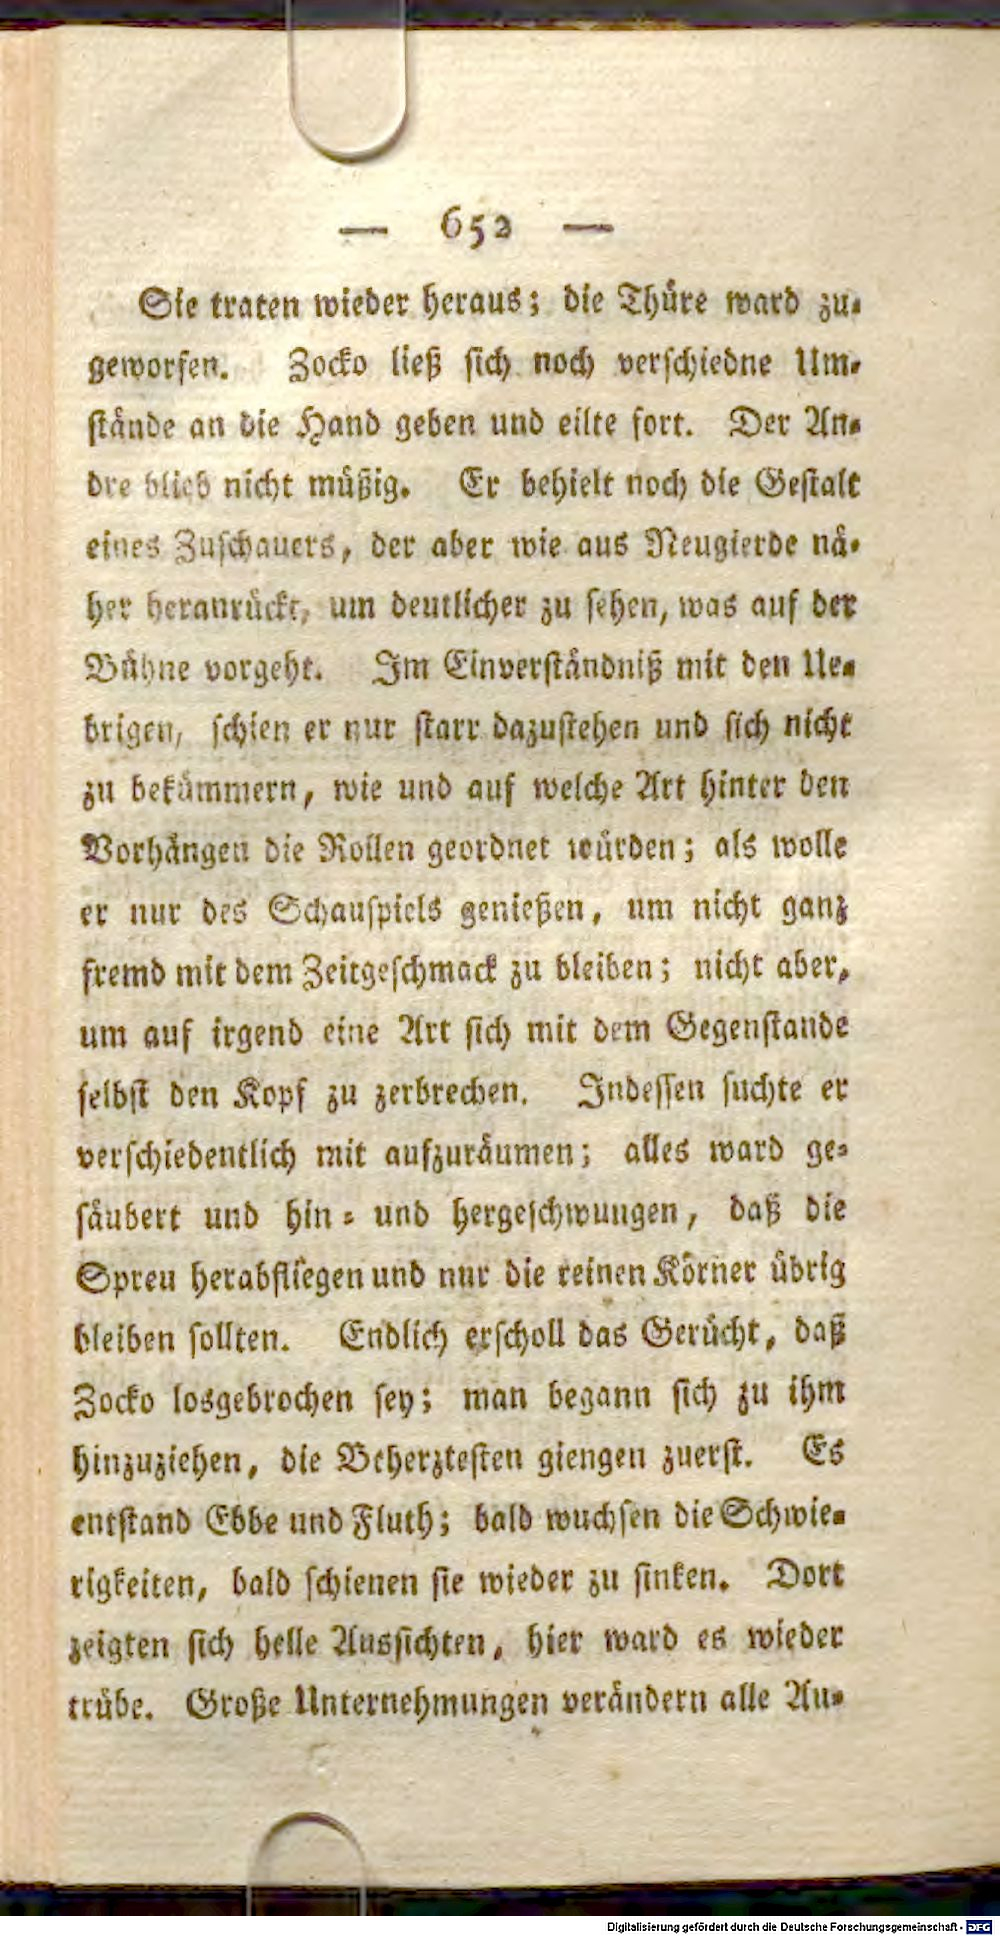 — 652 —
Sie traten wieder heraus; die Thüre ward zu-
geworfen. Zocko ließ sich noch verschiedne Um-
stände an die Hand geben und eilte fort. Der An-
dre blieb nicht müßig. Er behielt noch die Gestalt
eines Zuschauers, der aber wie aus Neugierde nä-
her heranrückt, um deutlicher zu sehen, was auf der
Bühne vorgeht. Im Einverständniß mit den Ue-
brigen, schien er nur starr dazustehen und sich nicht
zu bekümmern, wie und auf welche Art hinter den
Vorhängen die Rollen geordnet würden; als wolle
er nur des Schauspiels genießen, um nicht ganz
fremd mit dem Zeitgeschmack zu bleiben; nicht aber,
um auf irgend eine Art sich mit dem Gegenstande
selbst den Kopf zu zerbrechen. Indessen suchte er
verschiedentlich mit aufzuräumen; alles ward ge-
säubert und hin- und hergeschwungen, daß die
Spreu herabfliegen und nur die reinen Körner übrig
bleiben sollten. Endlich erscholl das Gerücht, daß
Zocko losgebrochen sey; man begann sich zu ihm
hinzuziehen, die Beherztesten giengen zuerst. Es
entstand Ebbe und Fluth; bald wuchsen die Schwie-
rigkeiten, bald schienen sie wieder zu sinken. Dort
zeigten sich helle Aussichten, hier ward es wieder
trübe. Große Unternehmungen verändern alle Au-
Digitalisierung gefördert durch die Deutsche Forschungsgemeinschaft - DFG